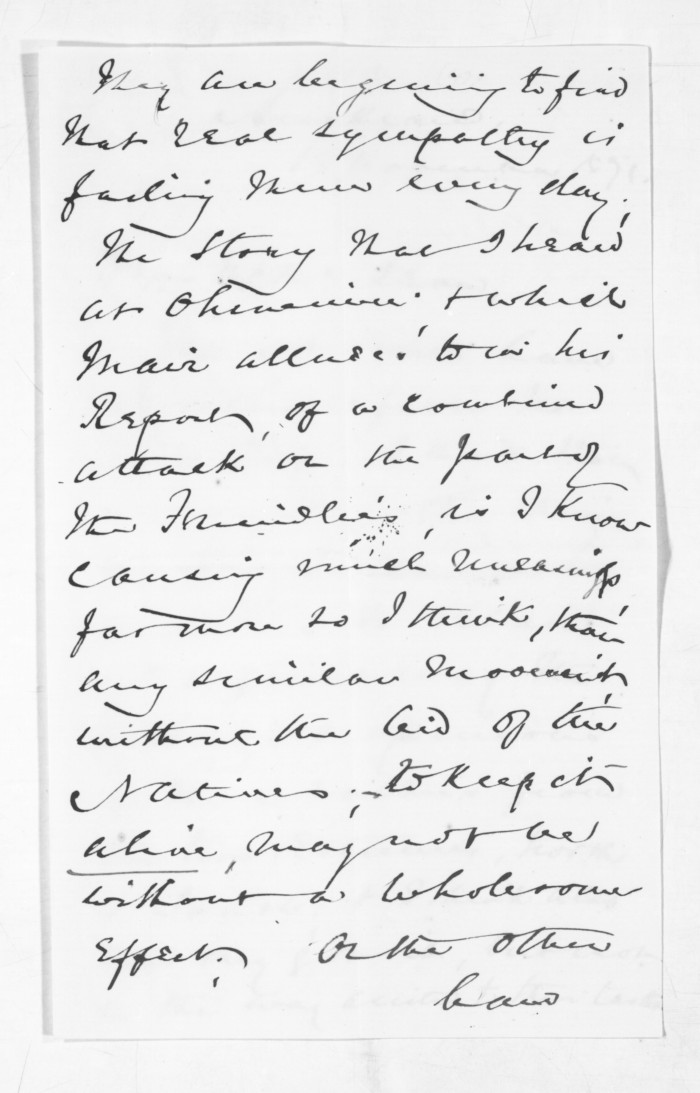 They are beginning to find
that real sympathy is
failing them every day.
The Story that I heard
at Ohinemuri & which
Mair alludes to in his
Report, of a combined
attack on the part of
the Friendlies, is I know
causing much uneasiness,
far more so I think, than
any similar movement
without the aid of the
Natives; - to keep it
alive, may not be
without a wholesome
Effect. On the other
hand